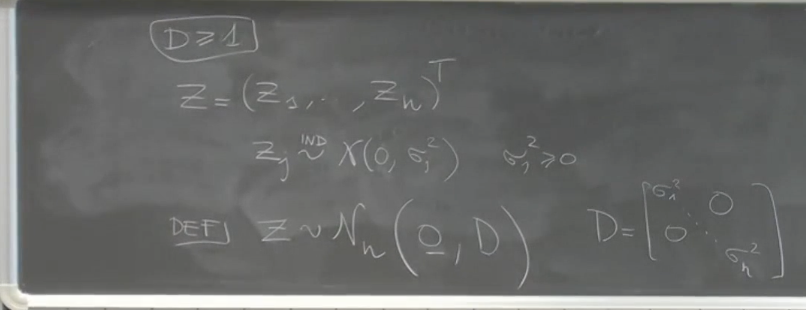 D ≥ 1
Z = (Z₁, .. , Zₙ)ᵀ
Zⱼ ~ᴵᴺᴰ N(0, σⱼ²) σⱼ² ≥ 0
DEF] Z ~ Nₙ(0, D) D = [σ₁² 0 ⋱ 0 σₙ²]